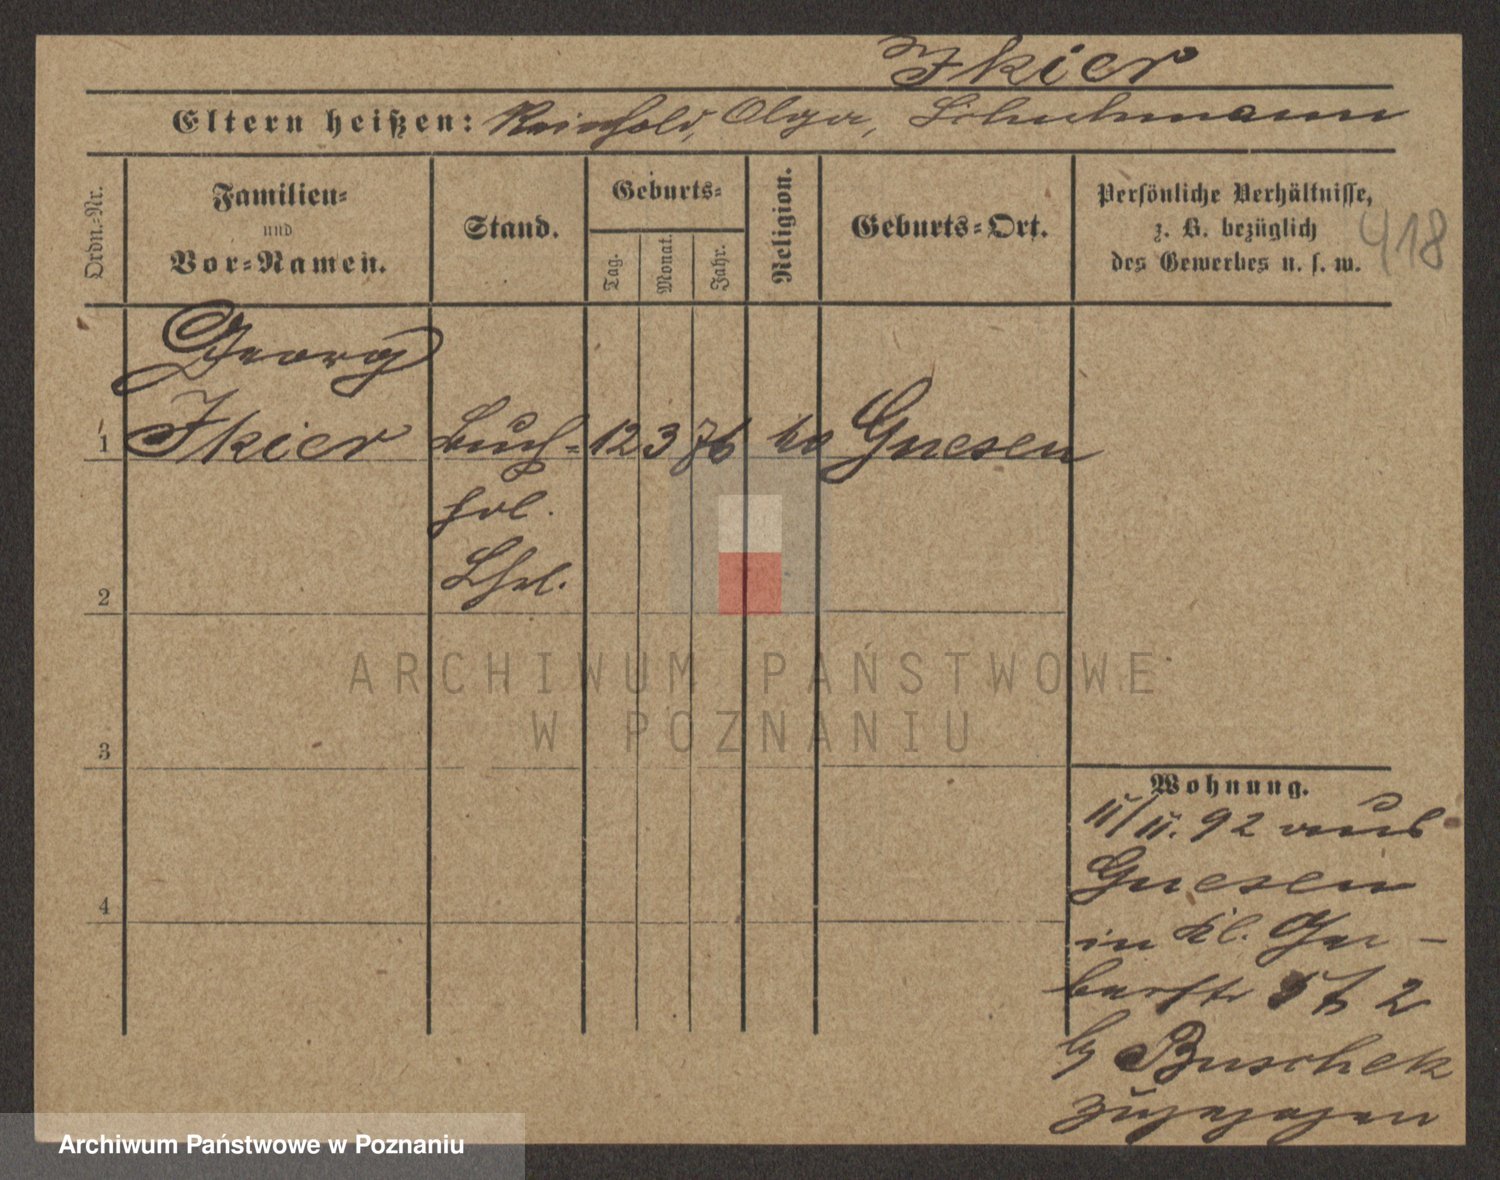 Ikier
Eltern heißen: Reinhold, Olga, Schuhmann
Ordn.-Nr.
Familien-
und
Vor-Namen.
Stand.
Geburts-
Tag.
Monat.
Jahr.
Religion.
Geburts-Ort.
Persönliche Verhältnisse,
z. B. bezüglich
des Gewerbes u. s. w.
418
Georg
1 Ikier Buch- 12 3 76 Gnesen
hdl.
2 Lhrl.
ARCHIWUM PAŃSTWOWE
W POZNANIU
3
Wohnung.
11/11. 92 aus
Gnesen
4
in Kl. Ger-
berstr 2
Buschek
zugezogen
Archiwum Państwowe w Poznaniu